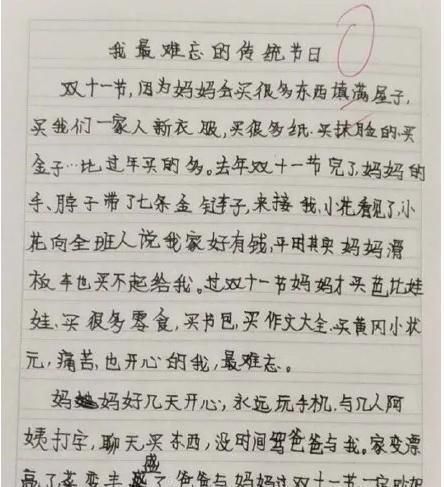 我最难忘的传统节日
双十一节,因为妈妈会买很多东西填满屋子,
买我们一家人新衣服,买很多纸.买抹脸的.买
金子…比过年买的多。去年双十一节完了,妈妈的
手、脖子带了七条金链子,来接我,小花看见了,小
花向全班人说我家好有钱,平日其实妈妈滑
板车也买不起给我。过双十一节妈妈才买芭比娃
娃、买很多零食,买书包,买作文大全.买黄冈小状
元,痛苦,也开心的我,最难忘。
妈妈好几天开心,永远玩手机.与几人阿
姨打字,聊天,买东西,没时间骂爸爸与我。家变漂
亮了,菜变丰盛了,爸爸与妈妈过双十一节一定